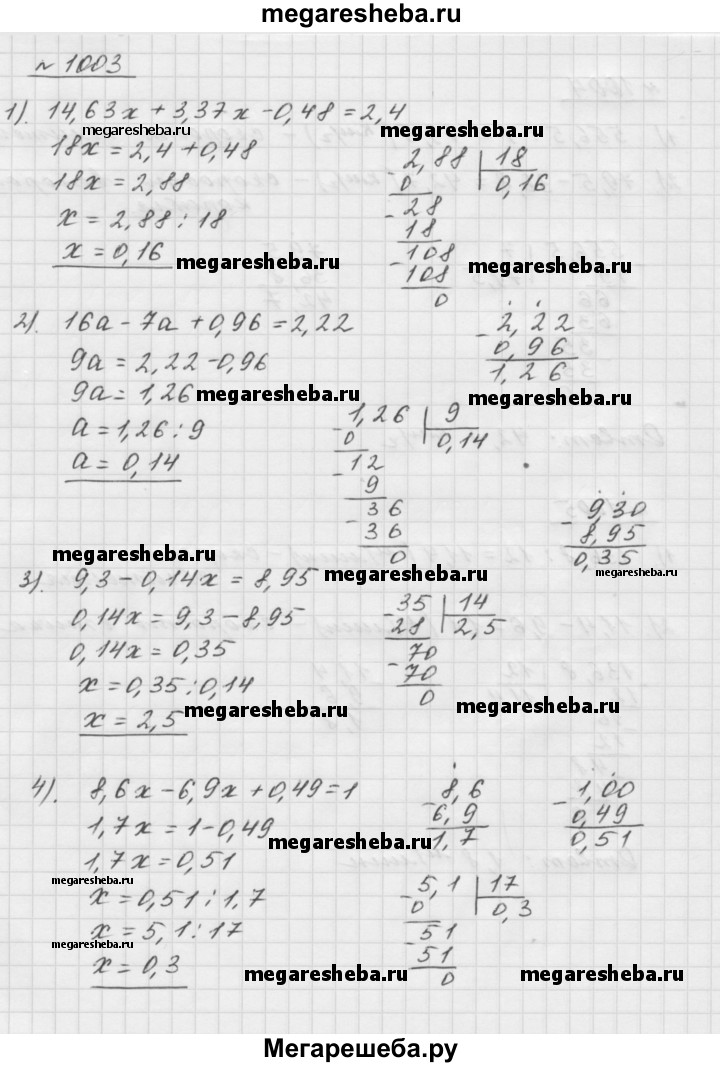 megaresheba.ru
№ 1003
1). 14,63x + 3,37x - 0,48 = 2,4
megaresheba.ru
megaresheba.ru
18x = 2,4 + 0,48
18x = 2,88
x = 2,88 : 18
x = 0,16
- 2,88 | 18
0 0,16
- 28
18
- 108
108
0
megaresheba.ru
megaresheba.ru
2). 16a - 7a + 0,96 = 2,22
9a = 2,22 - 0,96
9a = 1,26
a = 1,26 : 9
a = 0,14
- 2,22
0,96
1,26
megaresheba.ru
megaresheba.ru
- 1,26 | 9
0 0,14
- 12
9
- 36
36
0
- 9,30
8,95
0,35
megaresheba.ru
megaresheba.ru
megaresheba.ru
3). 9,3 - 0,14x = 8,95
0,14x = 9,3 - 8,95
0,14x = 0,35
x = 0,35 : 0,14
x = 2,5
- 35 | 14
28 2,5
- 70
70
0
megaresheba.ru
megaresheba.ru
4). 8,6x - 6,9x + 0,49 = 1
1,7x = 1 - 0,49
1,7x = 0,51
x = 0,51 : 1,7
x = 5,1 : 17
x = 0,3
- 8,6
6,9
1,7
- 1,00
0,49
0,51
megaresheba.ru
megaresheba.ru
megaresheba.ru
- 5,1 | 17
0 0,3
- 51
51
0
megaresheba.ru
megaresheba.ru
megaresheba.ru
Мегарешеба.ру